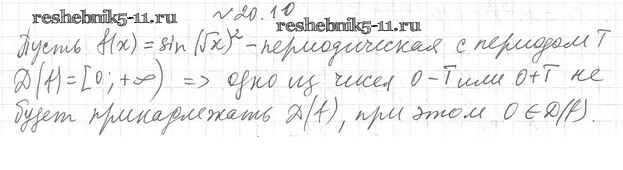 №20.10
reshebnik5-11.ru
reshebnik5-11.ru
Пусть f(x) = sin(√x)² - периодическая с периодом T
D(f) = [0; +∞) => одно из чисел 0-T или 0+T не
будет принадлежать D(f), при этом 0 ∈ D(f).